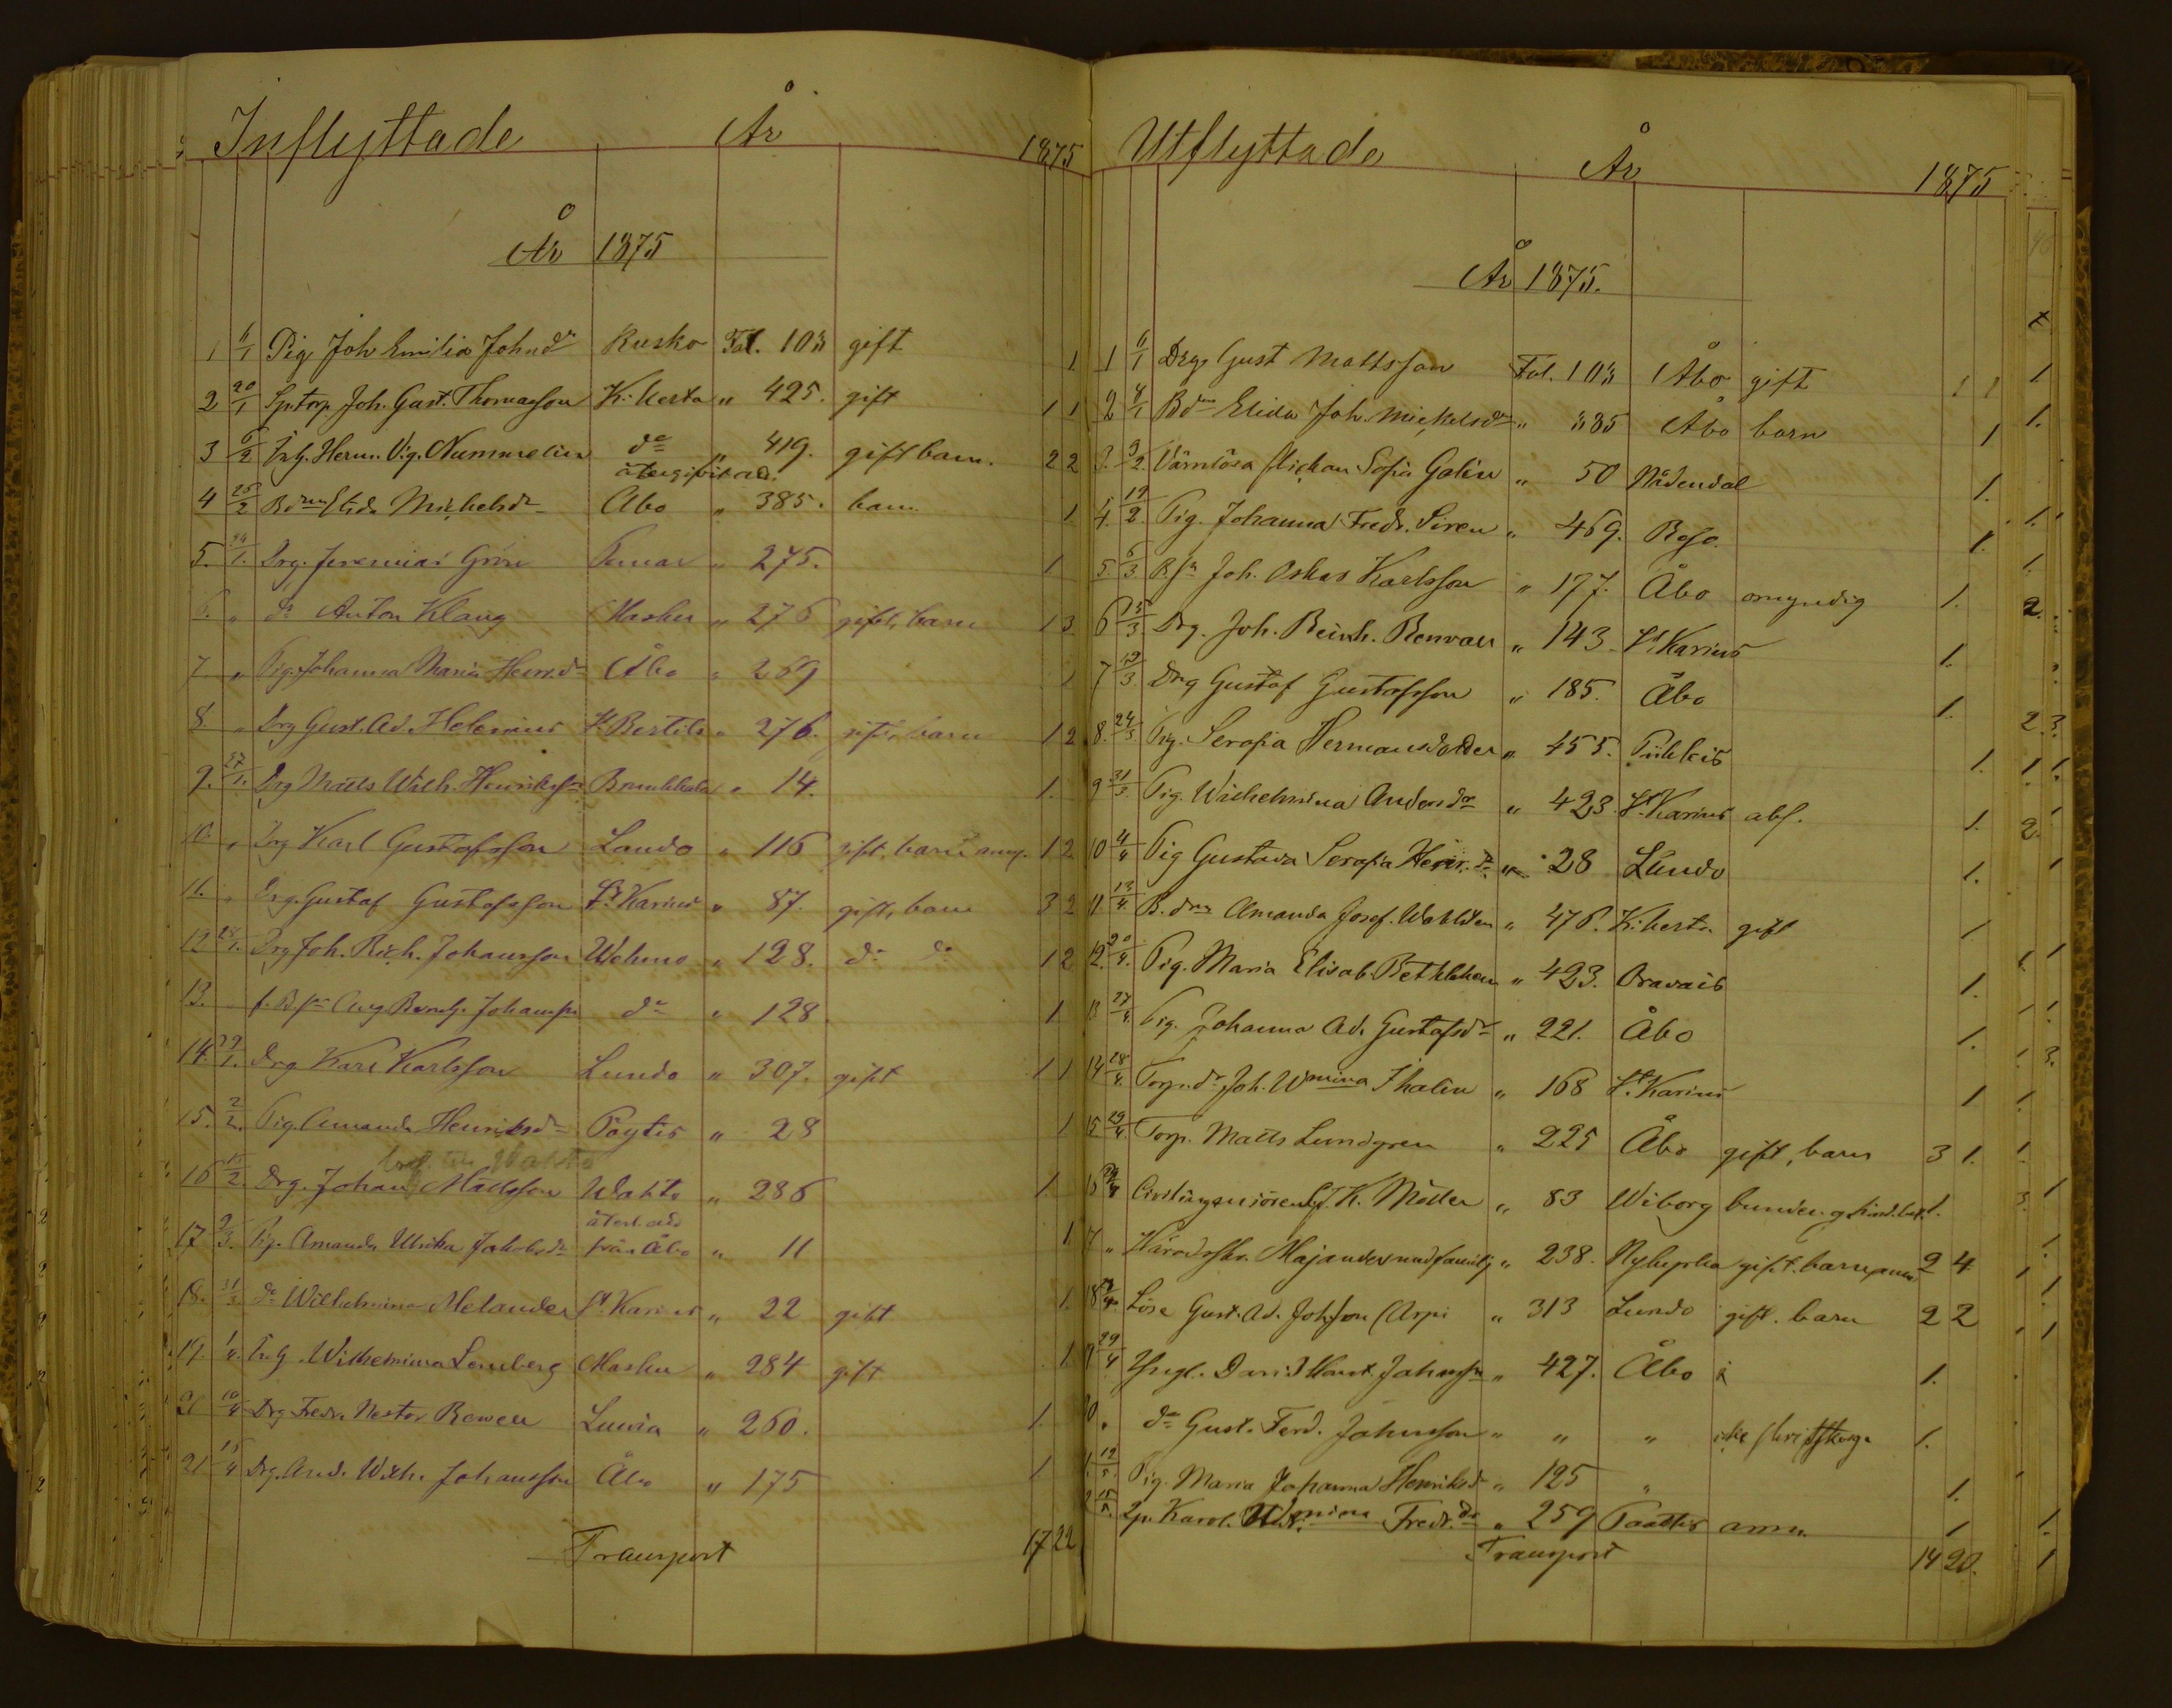 Inflyttade År 1875
År 1875
1 6/1 Pig Joh Emilia Johnsdr Rusko Fol. 103 gift 1
2 20/1 Sptorp. Joh. Gust. Thomasson K:kerta " 425. gift 1 1
3 6/2 Herm. Vig. Nummelin do " 419. gift barn. 2 2
4 25/2 Bdrn Elida Michelsdr Åbo " 385. barn 1
5. 24/1. Drg. Jeremias Grön " 275. 1
6. " do Anton Klang Masku " 276 gift, barn 1 3
7 " Pig. Johanna Maria Henr.dr Åbo " 269 1
8. " Drg Gust. Ad. Helenius St Bertils " 276. gift, barn 1 2
9. 27/1. Drg Matts Wilh. Henriksson " 14. 1.
10. " Drg Karl Gustafsson Lundo " 116 gift, barn anm. 1 2
11. " Drg. Gustaf Gustafsson St Karins " 87. gift, barn 3 2
12 28/1. Drg Joh. Rich. Johansson Wehmo " 128. do do 1 2
13. " Aug Johansson do " 128. 1
14. 29/1. Drg Karl Karlsson Lundo " 307. gift 1 1
15. 2/2. Pig. Amanda Henriksdr Pöytis " 28 1
16 15/2. Drg. Johan Mattsson Wahto " 286 1
17 9/3. Pig. Amanda Ulrika Jakobsdr från Åbo " 11 1
18. 31/3 do Wilhelmina Melander St Karins " 22 gift 1.
19. 1/4. Wilhelmina Lemberg Masku " 284 gift 1
20 10/4 Drg Fredr. Nestor Rewell Luvia " 260. 1.
21 15/4 Drg. And. Wilh. Johansson Åbo " 175 1
Transport 17 22
Utflyttade År 1875
År 1875.
1 6/1 Drg. Gust Mattsson Fol. 103 Åbo gift 1 1
2 4/1 Bdrn Elida Joh. Mickelsdr " 385 Åbo barn 1
3. 9/2. Värnlösa flickan Sofia Galin " 50 Nådendal 1.
4. 19/2. Pig. Johanna Fredr. Siren " 469. Reso. 1.
5 5/3. Joh. Oskar Karlsson " 177. Åbo omyndig 1.
6 15/3 Drg. Joh. Reinh. Renvall " 143. St Karins 1.
7 19/3. Drg Gustaf Gustafsson " 185. Åbo 1.
8. 24/3 Pig. Serafia Hermansdotter " 455. Piikkis 1.
9 31/3. Pig. Wilhelmina Andersdr " 423. St Karins abs. 1.
10 4/4 Pig Gustava Serafia Henr.dr " 28 Lundo 1.
11 13/4 B.drn Amanda Josef. Wahlsten " 476. K:kerta gift 1
12. 20/4. Pig. Maria Elisab. Bethlehem " 423. Oravais 1.
13 27/4. Pig. Johanna Ad. Gustafsdr " 221. Åbo 1.
14 28/4 Torp.dr Joh. Wmina Thalin " 168 St Karins 1
15 29/4. Torp. Matts Lundgren " 225 Åbo gift, barn 3 1.
16 Civilingeniören K. Möller " 83 Wiborg 1.
17 " Häradsskr. Majander med familj " 238. Nykyrka gift. barn, anm. 2 4
18 Löse Gust. Ad. Johsson (Arpi " 313 Lundo gift. barn 2 2
19 29/4 Yngl. David Konst. Johansson " 427. Åbo 1.
20. " do Gust. Ferd. Johansson " " " icke 1.
21. 12/5. Pig. Maria Johanna Henriksdr " 125 " 1.
22 15/5. Karol. Wmina Fredr.dr " 259 Paattis anm. 1
Transport 14 20.